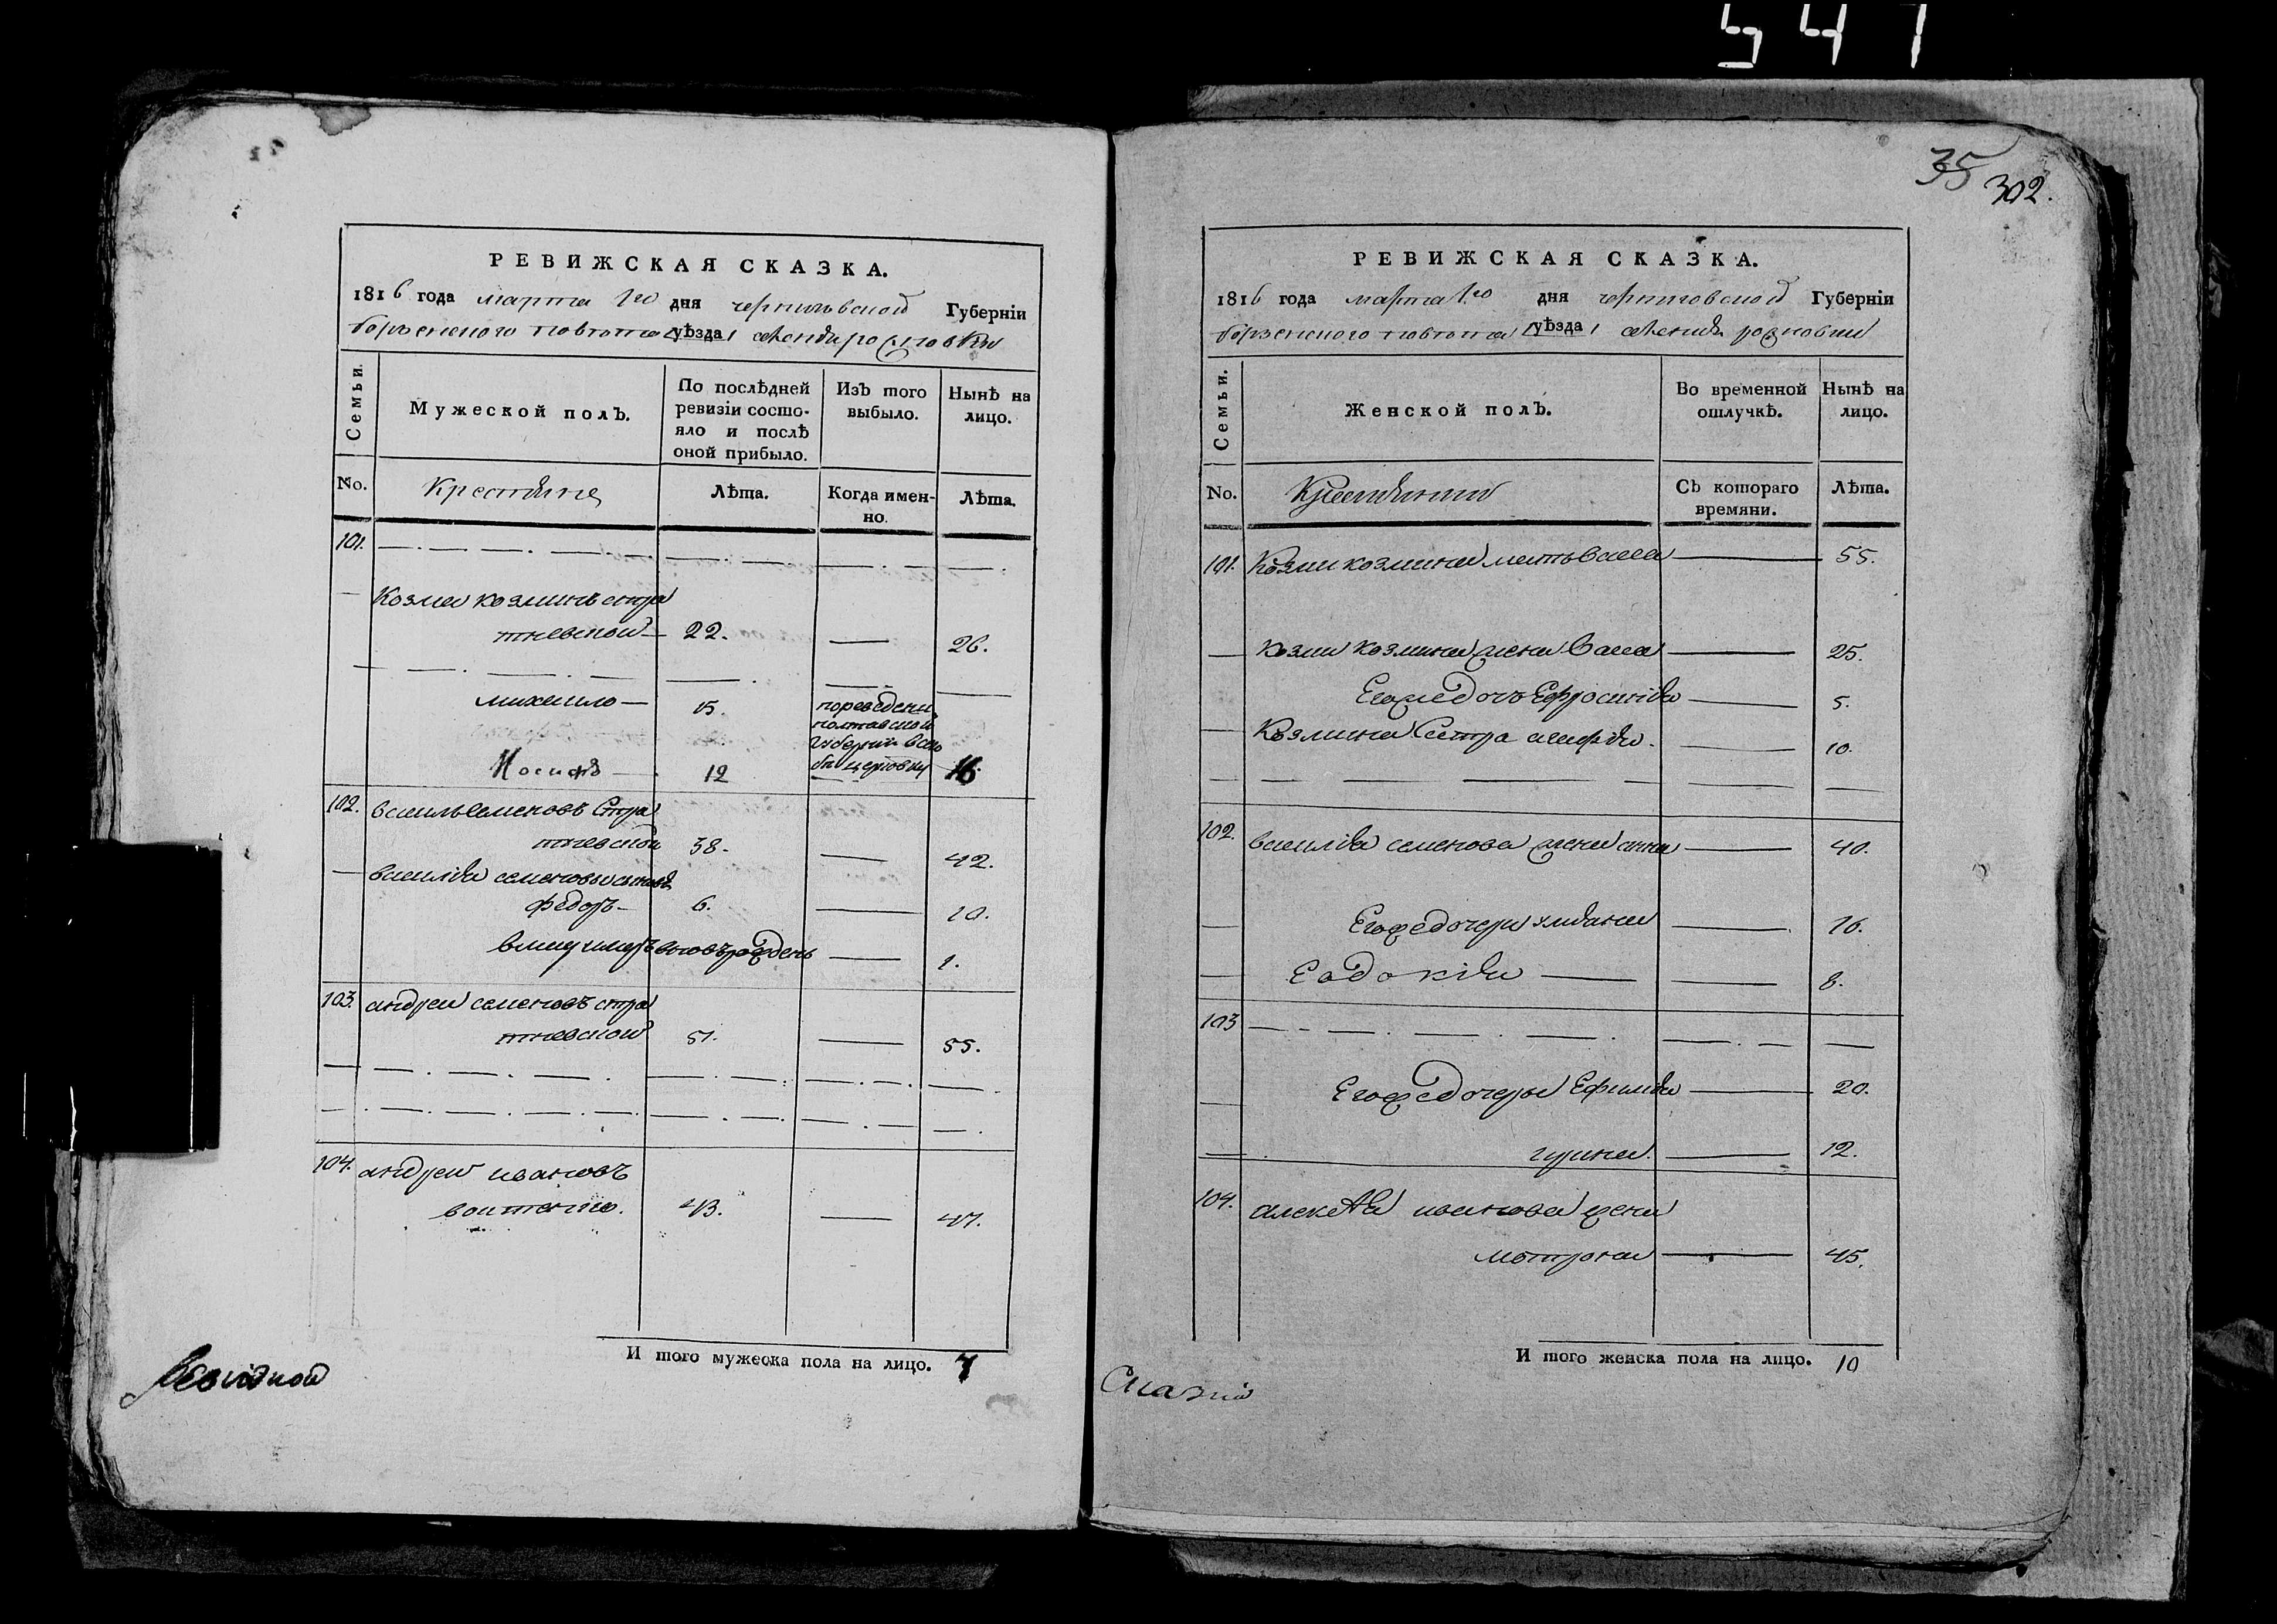 547
РЕВИЖСКАЯ СКАЗКА.
1816 года марта 1го дня черниговской Губерніи
борзенского повѣта /уѣзда/ селенія рожновки
Семьи.
Мужеской полъ.
По послѣдней ревизіи состо-
яло и послѣ
оной прибыло.
Изъ того
выбыло.
Нынѣ на
лицо.
No.
Крестяне
Лѣта.
Когда имен-
но.
Лѣта.
101.
Козма козминъ стра
тиевской 22. 26.
михаило 15. пореведени
полтавской
губерніи
Иосифъ 12 16.
102. василь семеновъ стра
тиевской 38. 42.
василія семеновы сыновя
федоръ 6. 10.
новърожденъ 1.
103. андреи семеновъ стра
тиевской 51. 55.
104. андреи ивановъ
воитенко. 43. 47.
И того мужеска пола на лицо. 7
Ревизкой
35
302.
РЕВИЖСКАЯ СКАЗКА.
1816 года марта 1го дня черниговской Губерніи
борзенского повѣта /уѣзда/ селенія рожновки
Семьи.
Женской полъ.
Во временной
отлучкѣ.
Нынѣ на
лицо.
No.
Крестянки
Съ котораго
времяни.
Лѣта.
101. Козми козмина мать васса 55.
козми козмина жена васса 25.
Егоже дочъ Ефросинія 5.
Козмина Сестра агафія. 10.
102. василія семенова жена анна 40.
Егоже дочери улияна 16.
Евдокія 8.
103
Егоже дочеры Ефимія 20.
12.
104. алексѣя иванова жена
мотрона 45.
И того женска пола на лицо. 10
Сказки